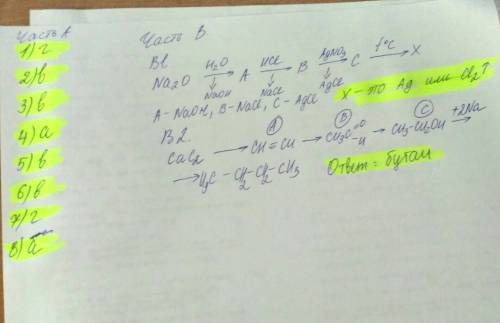 Часть А
1) г
2) в
3) в
4) а
5) в
6) в
7) г
8) а
Часть В
В1
Na₂O —H₂O→ A —HCl→ B —AgNO₃→ C —t°C→ X
↓ NaOH ↓ NaCl ↓ AgCl
A - NaOH, B - NaCl, C - AgCl
X - это Ag или Cl₂↑
В2.
(A) (B) (C)
CaC₂ → CH≡CH → CH₃C=O -H → CH₃-CH₂OH +2Na
→ H₃C - CH₂ - CH₂ - CH₃
Ответ: бутан